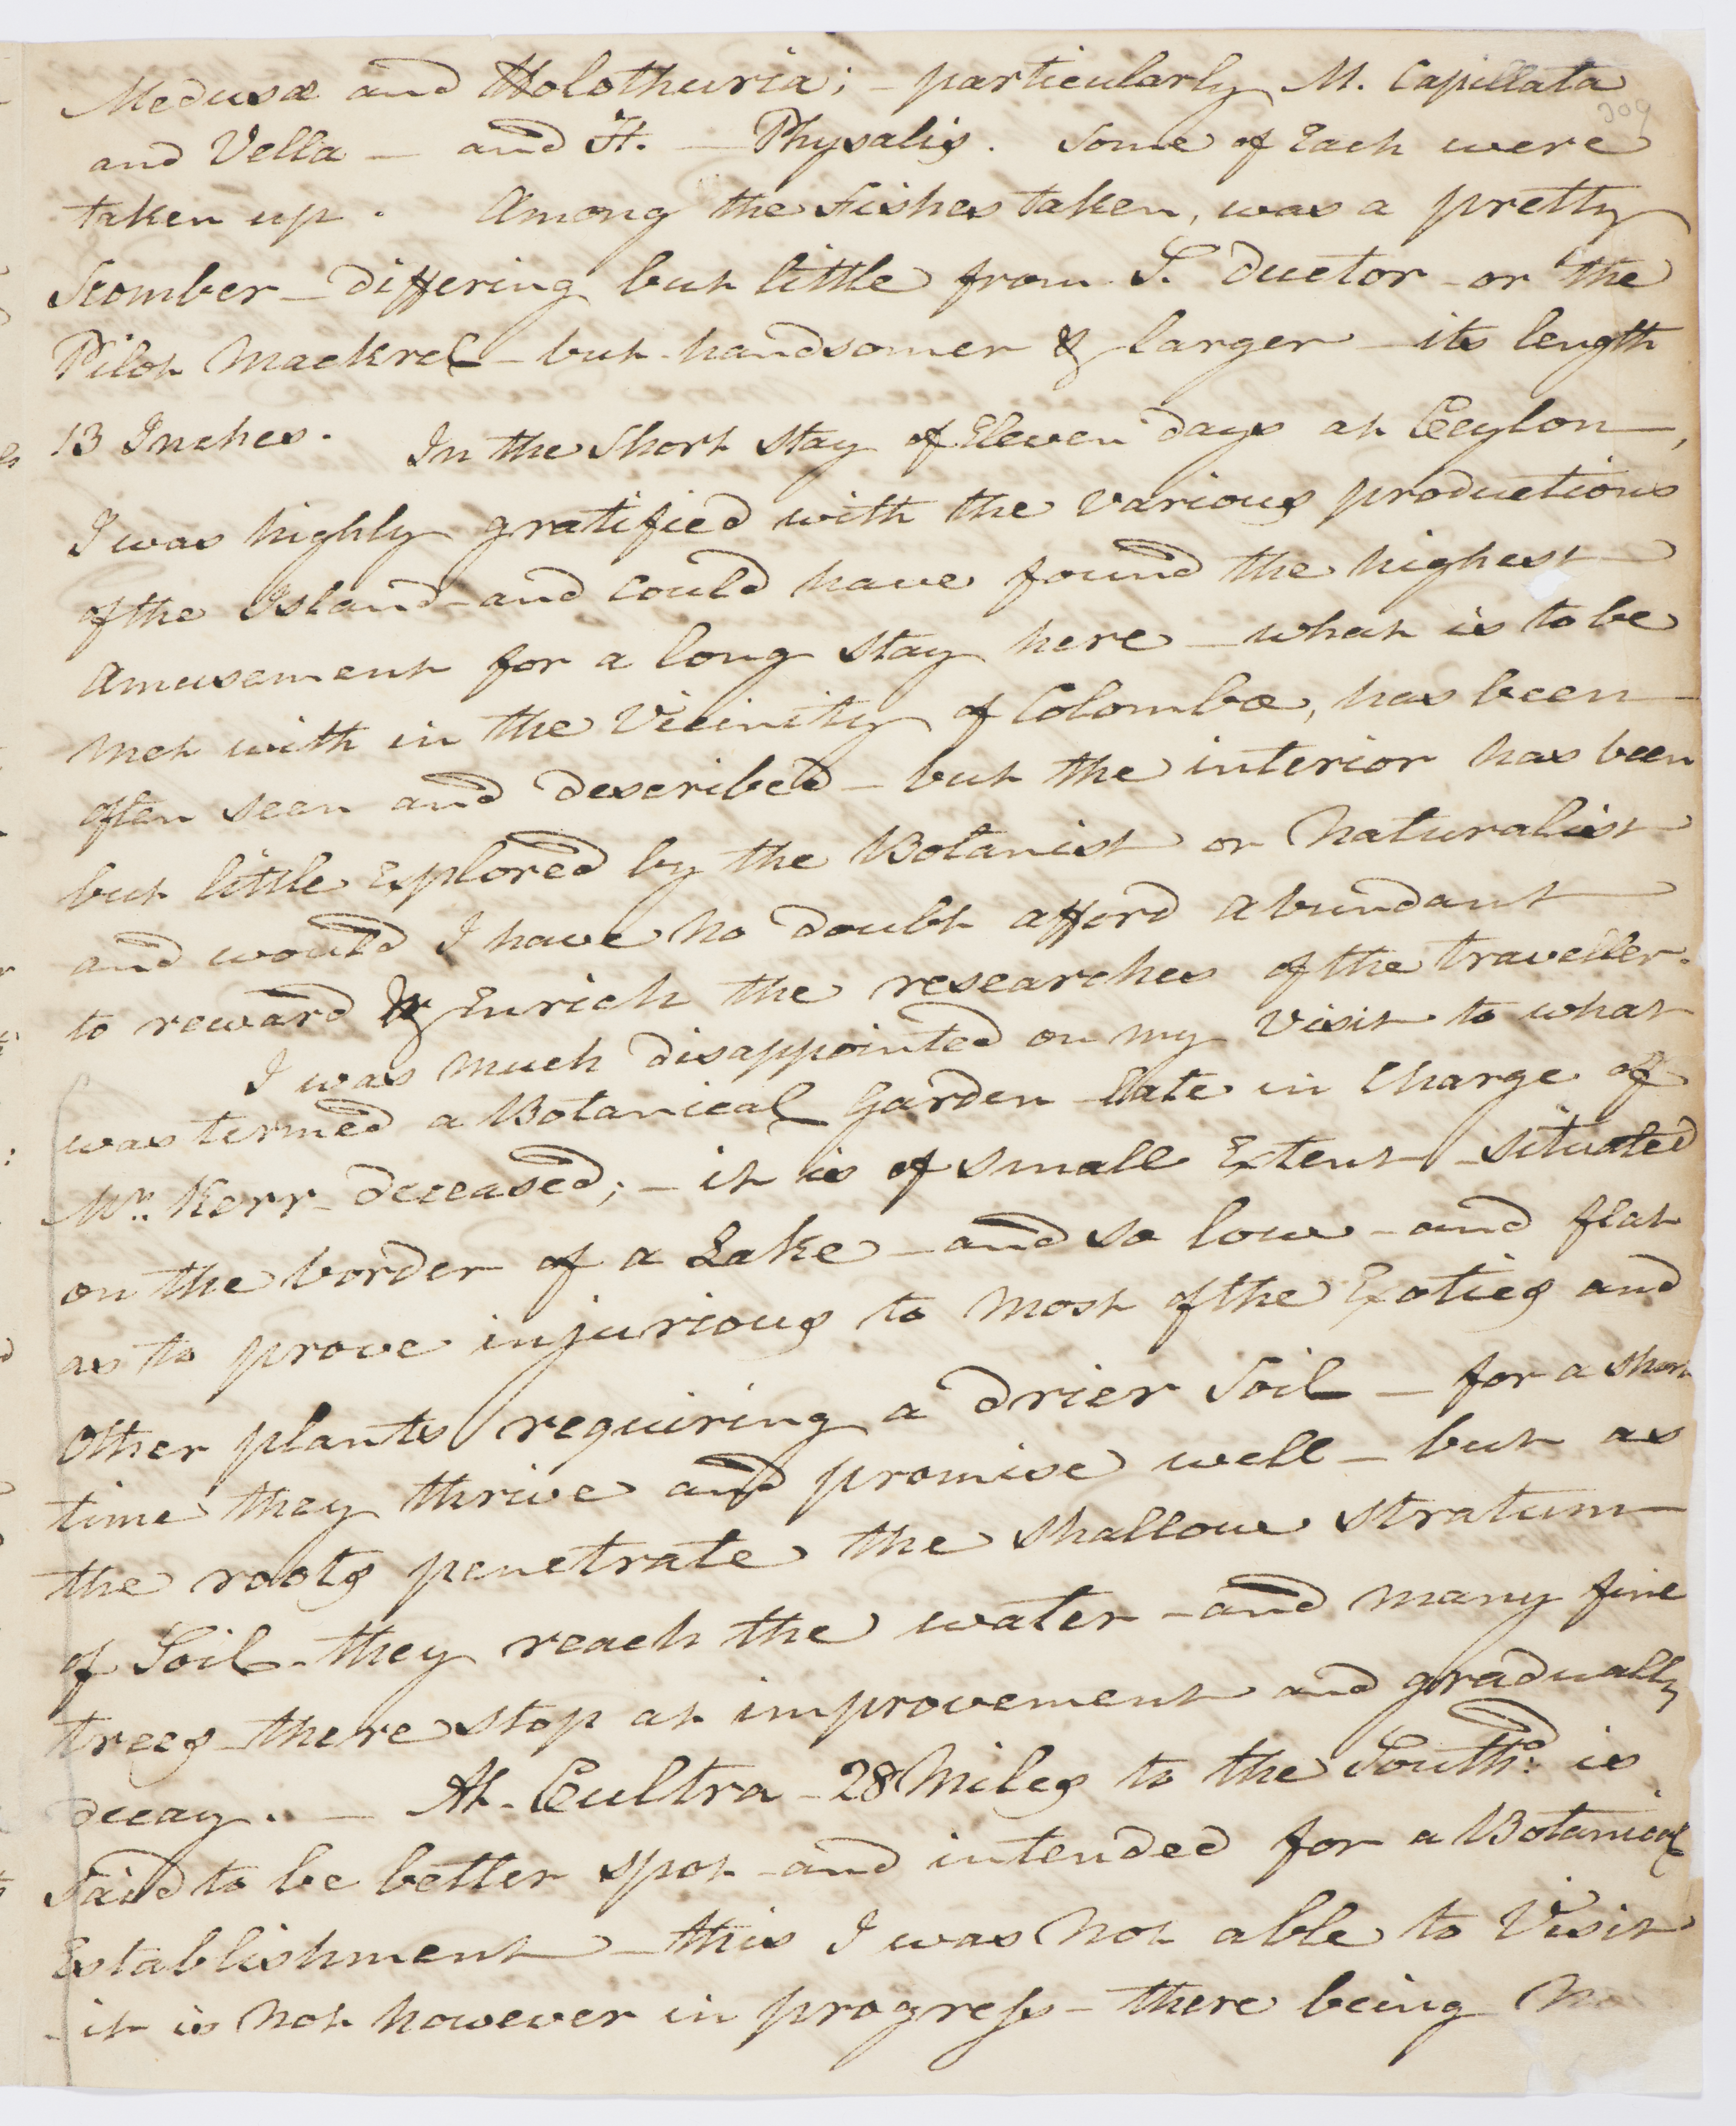 Medusæ and Holothuria; - particularly M. Capillata
209
and Vella — and H. — Physalis. Some of Each were
taken up. Among the Fishes taken, was a pretty
Scomber - differing but little from S. Ductor - or the
Pilot Mackrel - but handsomer & larger - its length
13 Inches. In the Short Stay of Eleven days at Ceylon,
I was highly gratified with the various productions
of the Island - and Could have found the highest
Amusement for a long Stay here - what is to be
Met with in the Vicinity of Colombo, has been
often seen and described - but the interior has been
but little Explored by the Botanist or Naturalist
and would I have no doubt afford abundant
to reward & Enrich the researches of the traveller.
I was Much disappointed on my Visit to what
was termed a Botanical Garden - late in Charge of
Mr. Kerr - deceased; - it is of small Extent - situated
on the border of a Lake - and so low - and flat
as to prove injurious to Most of the Exotics and
Other plants requiring a drier Soil - for a short
time they thrive and promise well - but as
the roots penetrate the shallow stratum
of Soil - they reach the water - and Many fine
trees there stop at improvement and gradually
decay. — At - Cultra - 28 Miles to the Southd. is
Said to be better spot - and intended for a Botanical
Establishment - this I was Not able to Visit
- it is Not however in progress - there being No